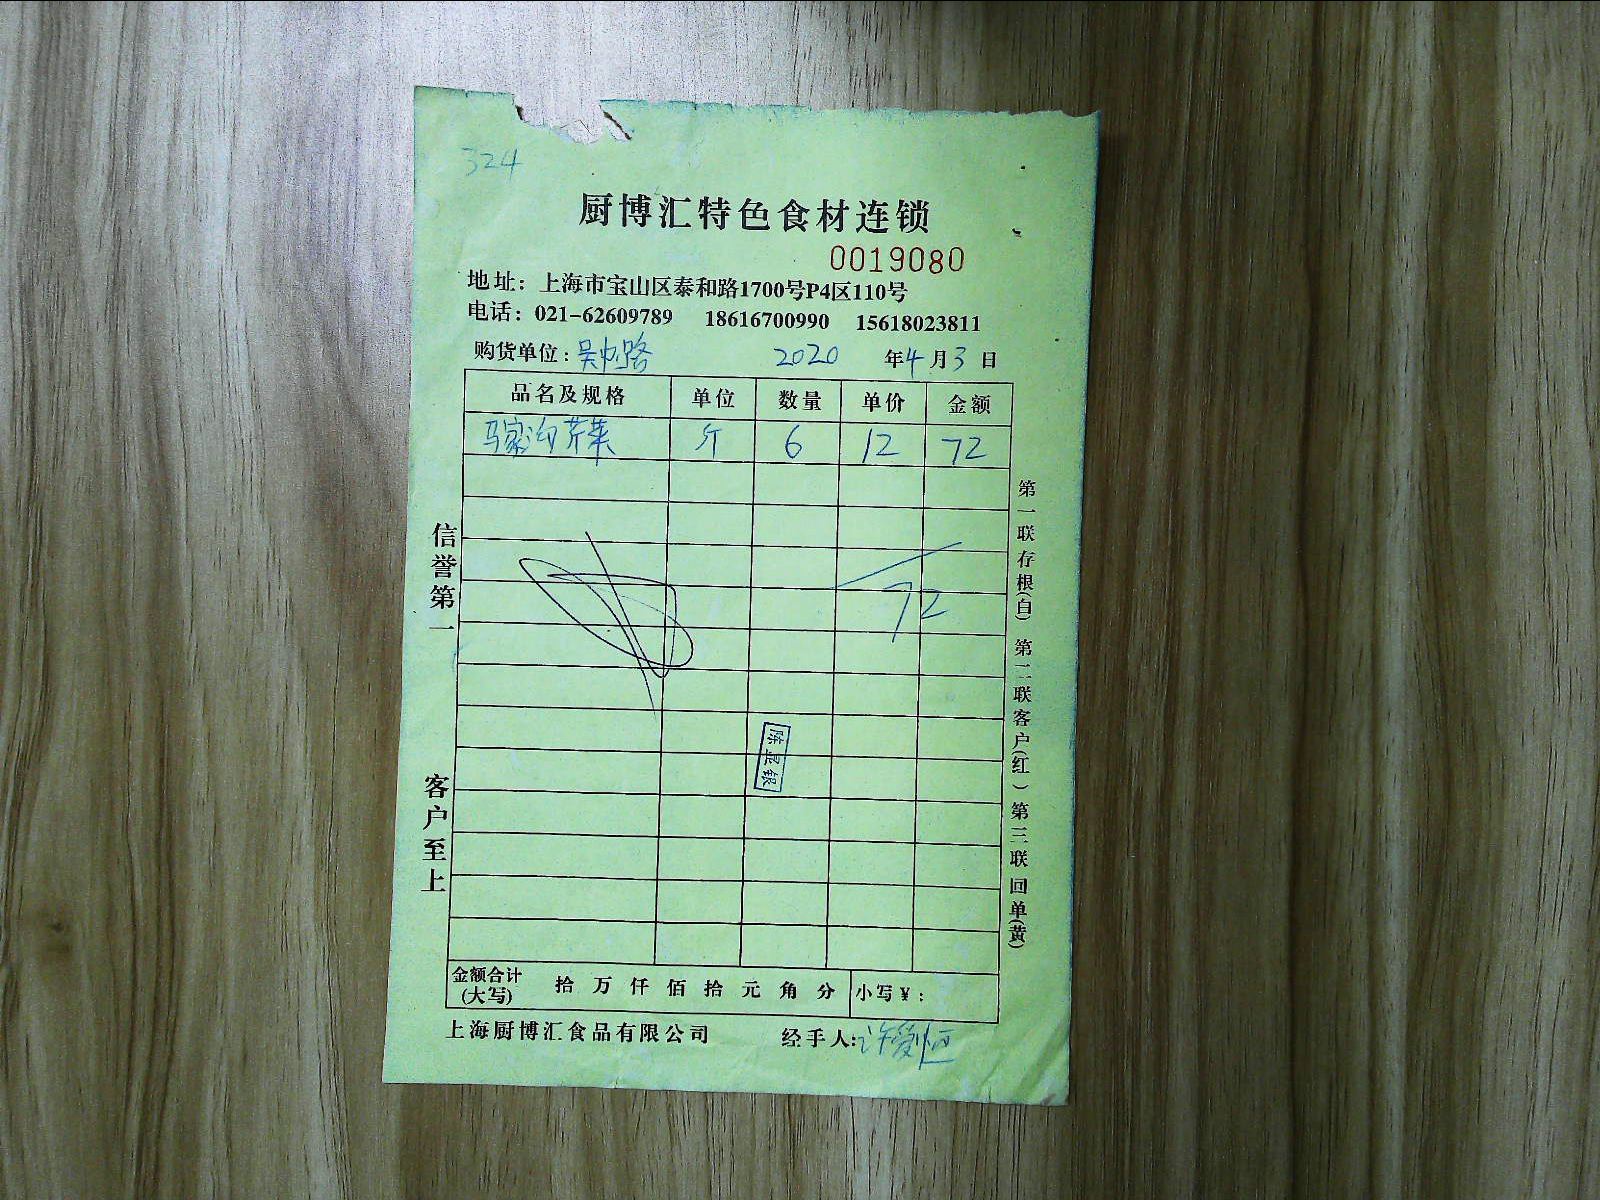 324
厨博汇特色食材连锁
0019080
地址：上海市宝山区泰和路1700号P4区110号
电话：021-62609789 18616700990 15618023811
购货单位：吴中路 2020 年4月3日
品名及规格 单位 数量 单价 金额
马家沟芹菜 斤 6 12 72
72
陈显银
信誉第一
客户至上
第一联存根(白) 第二联客户(红) 第三联回单(黄)
金额合计(大写) 拾 万 仟 佰 拾 元 角 分 小写¥：
上海厨博汇食品有限公司 经手人:许爱恒